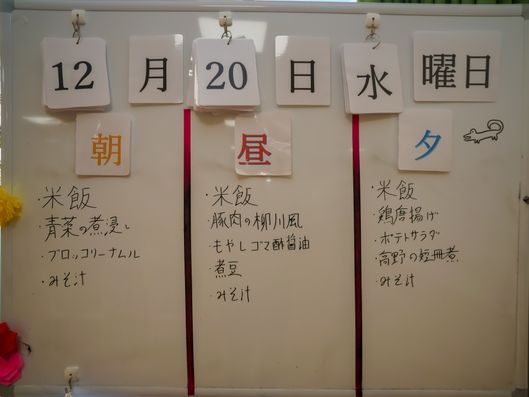 12月20日水曜日
朝
・米飯
・青菜の煮浸し
・ブロッコリーナムル
・みそ汁
昼
・米飯
・豚肉の柳川風
・もやしゴマ酢醤油
・煮豆
・みそ汁
夕
・米飯
・鶏唐揚げ
・ポテトサラダ
・高野の短冊煮
・みそ汁